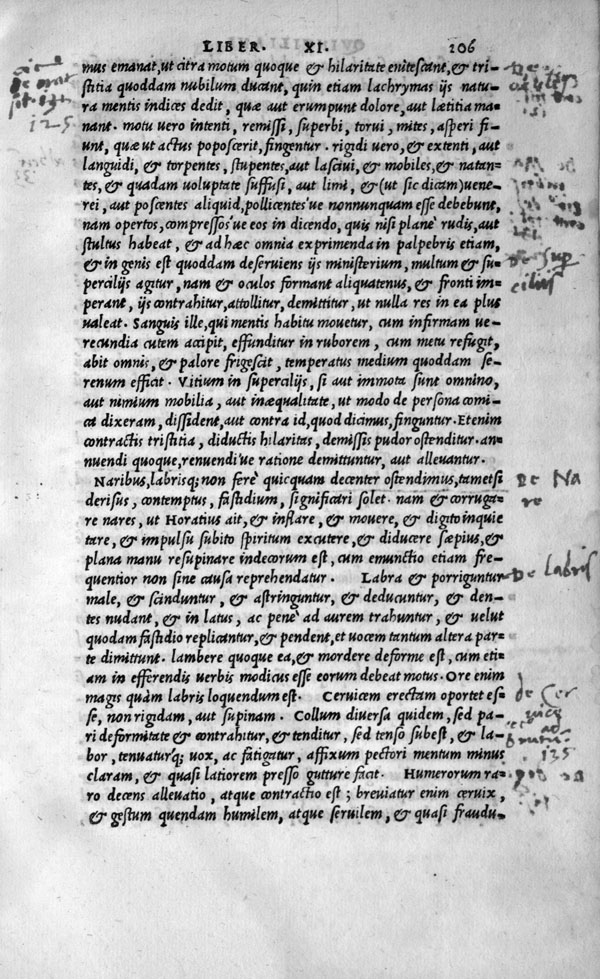 LIBER. XI. 206
mus emanat, ut citra motum quoque & hilaritate enitescant, & tri-
stitia quoddam nubilum ducant, quin etiam lachrymas ijs natu-
ra mentis indices dedit, quæ aut erumpunt dolore, aut lætitia ma-
nant. motu vero intenti, remissi, superbi, torui, mites, asperi fi-
unt, quæ ut actus poposcerit, fingentur. rigidi vero, & extenti, aut
languidi, & torpentes, stupentes, aut lasciui, & mobiles, & natan-
tes, & quadam uoluptate suffusi, aut limi, & (ut sic dicam) uene-
rei, aut poscentes aliquid, pollicentes'ue nonnunquam esse debebunt,
nam opertos, compressos'ue eos in dicendo, quis nisi planè rudis, aut
stultus habeat, & ad hæc omnia exprimenda in palpebris etiam,
& in genis est quoddam deseruiens ijs ministerium, multum & su-
percilijs agitur, nam & oculos formant aliquatenus, & fronti im-
perant, ijs contrahitur, attollitur, demittitur, ut nulla res in ea plus
ualeat. Sanguis ille, qui mentis habitu mouetur, cum infirmam ue-
recundia cutem accipit, effunditur in ruborem, cum metu refugit,
abit omnis, & palore frigescit, temperatus medium quoddam se-
renum efficit. Vitium in supercilijs, si aut immota sunt omnino,
aut nimium mobilia, aut inæqualitate, ut modo de persona comi-
ca dixeram, dissident, aut contra id, quod dicimus, finguntur. Etenim
contractis tristitia, diductis hilaritas, demissis pudor ostenditur. an-
nuendi quoque, renuendi'ue ratione demittuntur, aut alleuantur.
Naribus, labrisq; non ferè quicquam decenter ostendimus, tametsi
derisus, contemptus, fastidium, significari solet. nam & corruga-
re nares, ut Horatius ait, & inflare, & mouere, & digito inquie
tare, & impulsu subito spiritum excutere, & diducere sæpius, &
plana manu resupinare indecorum est, cum emunctio etiam fre-
quentior non sine causa reprehendatur. Labra & porriguntur
male, & scinduntur, & astringuntur, & deducuntur, & den-
tes nudant, & in latus, ac penè ad aurem trahuntur, & uelut
quodam fastidio replicantur, & pendent, et uocem tantum altera par-
te dimittunt. lambere quoque ea, & mordere deforme est, cum eti-
am in efferendis uerbis modicus esse eorum debeat motus. Ore enim
magis quàm labris loquendum est. Ceruicem erectam oportet es-
se, non rigidam, aut supinam. Collum diuersa quidem, sed pa-
ri deformitate & contrahitur, & tenditur, sed tenso subest, & la-
bor, tenuaturq; uox, ac fatigatur, affixum pectori mentum minus
claram, & quasi latiorem presso gutture facit. Humerorum ra-
ro decens alleuatio, atque contractio est; breuiatur enim ceruix,
& gestum quendam humilem, atque seruilem, & quasi fraudu-
125
De Sup
cilijs
De Na
re
De labris
de Cer
125